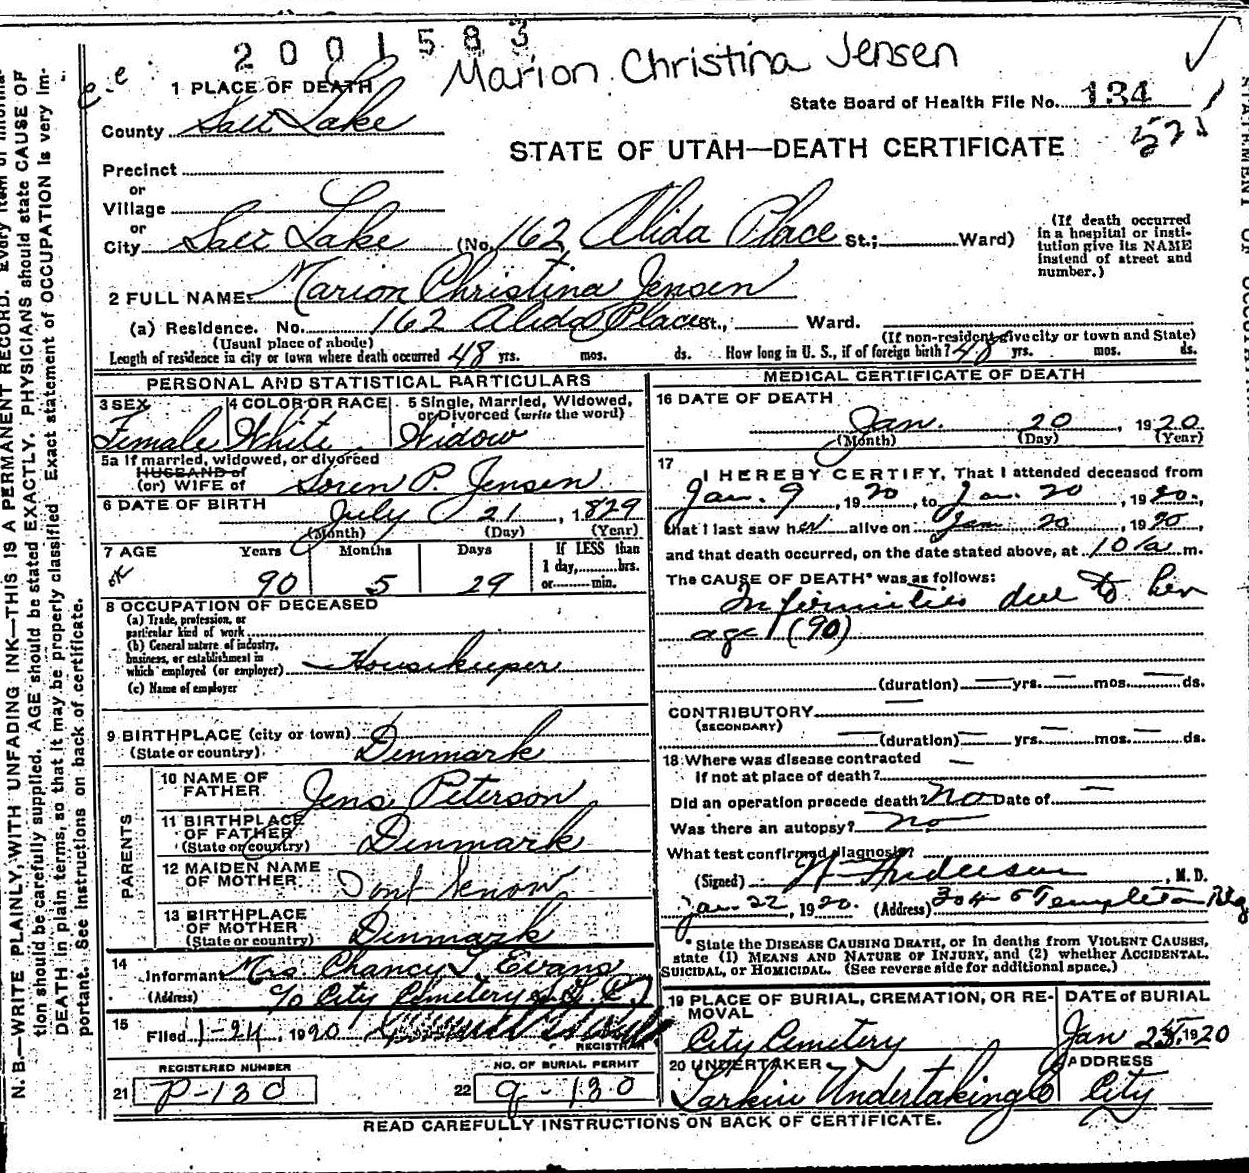 2001583
Marion Christina Jensen
1 PLACE OF DEATH
State Board of Health File No. 134
County Salt Lake
STATE OF UTAH—DEATH CERTIFICATE
Precinct
or
Village
or
City Salt Lake (No. 162 Alida Place St.; Ward)
(If death occurred in a hospital or institution give its NAME instead of street and number.)
2 FULL NAME Marion Christina Jensen
(a) Residence. No. 162 Alida Place St., Ward.
(Usual place of abode) (If non-resident give city or town and State)
Length of residence in city or town where death occurred 48 yrs. mos. ds. How long in U. S., if of foreign birth? 48 yrs. mos. ds.
PERSONAL AND STATISTICAL PARTICULARS
3 SEX 4 COLOR OR RACE 5 Single, Married, Widowed, or Divorced (write the word)
Female White Widow
5a If married, widowed, or divorced
HUSBAND of
(or) WIFE of Soren P. Jensen
6 DATE OF BIRTH July 21, 1829
(Month) (Day) (Year)
7 AGE Years Months Days If LESS than
1 day, hrs.
or min.
90 5 29
8 OCCUPATION OF DECEASED
(a) Trade, profession, or
particular kind of work
(b) General nature of industry,
business, or establishment in
which employed (or employer) Housekeeper
(c) Name of employer
9 BIRTHPLACE (city or town)
(State or country) Denmark
PARENTS
10 NAME OF
FATHER Jens Peterson
11 BIRTHPLACE
OF FATHER
(State or country) Denmark
12 MAIDEN NAME
OF MOTHER Dont Know
13 BIRTHPLACE
OF MOTHER
(State or country) Denmark
14 Informant Mrs Chancy L. Evans
(Address) c/o City Cemetery S. L. C.
15 Filed 1-24, 1920
REGISTRAR
REGISTERED NUMBER NO. OF BURIAL PERMIT
21 P-130 22 9-130
MEDICAL CERTIFICATE OF DEATH
16 DATE OF DEATH
Jan. 20, 1920
(Month) (Day) (Year)
17 I HEREBY CERTIFY, That I attended deceased from
Jan. 9, 1920, to Jan. 20, 1920.,
that I last saw her alive on Jan 20, 1920
and that death occurred, on the date stated above, at 10/a m.
The CAUSE OF DEATH* was as follows:
Infirmities due to her
age (90)
(duration) yrs. mos. ds.
CONTRIBUTORY
(SECONDARY)
(duration) yrs. mos. ds.
18 Where was disease contracted
if not at place of death?
Did an operation precede death? No Date of
Was there an autopsy? No
What test confirmed diagnosis?
(Signed) Anderson, M. D.
Jan. 22, 1920. (Address) Templeton Bldg
*State the DISEASE CAUSING DEATH, or in deaths from VIOLENT CAUSES,
state (1) MEANS AND NATURE OF INJURY, and (2) whether ACCIDENTAL,
SUICIDAL, or HOMICIDAL. (See reverse side for additional space.)
19 PLACE OF BURIAL, CREMATION, OR RE-
MOVAL
City Cemetery
DATE of BURIAL
Jan 25, 1920
20 UNDERTAKER
Larkin Undertaking Co
ADDRESS
City
READ CAREFULLY INSTRUCTIONS ON BACK OF CERTIFICATE.
N. B.—WRITE PLAINLY, WITH UNFADING INK—THIS IS A PERMANENT RECORD. Every item of informa-
tion should be carefully supplied. AGE should be stated EXACTLY. PHYSICIANS should state CAUSE OF
DEATH in plain terms, so that it may be properly classified. Exact statement of OCCUPATION is very im-
portant. See instructions on back of certificate.